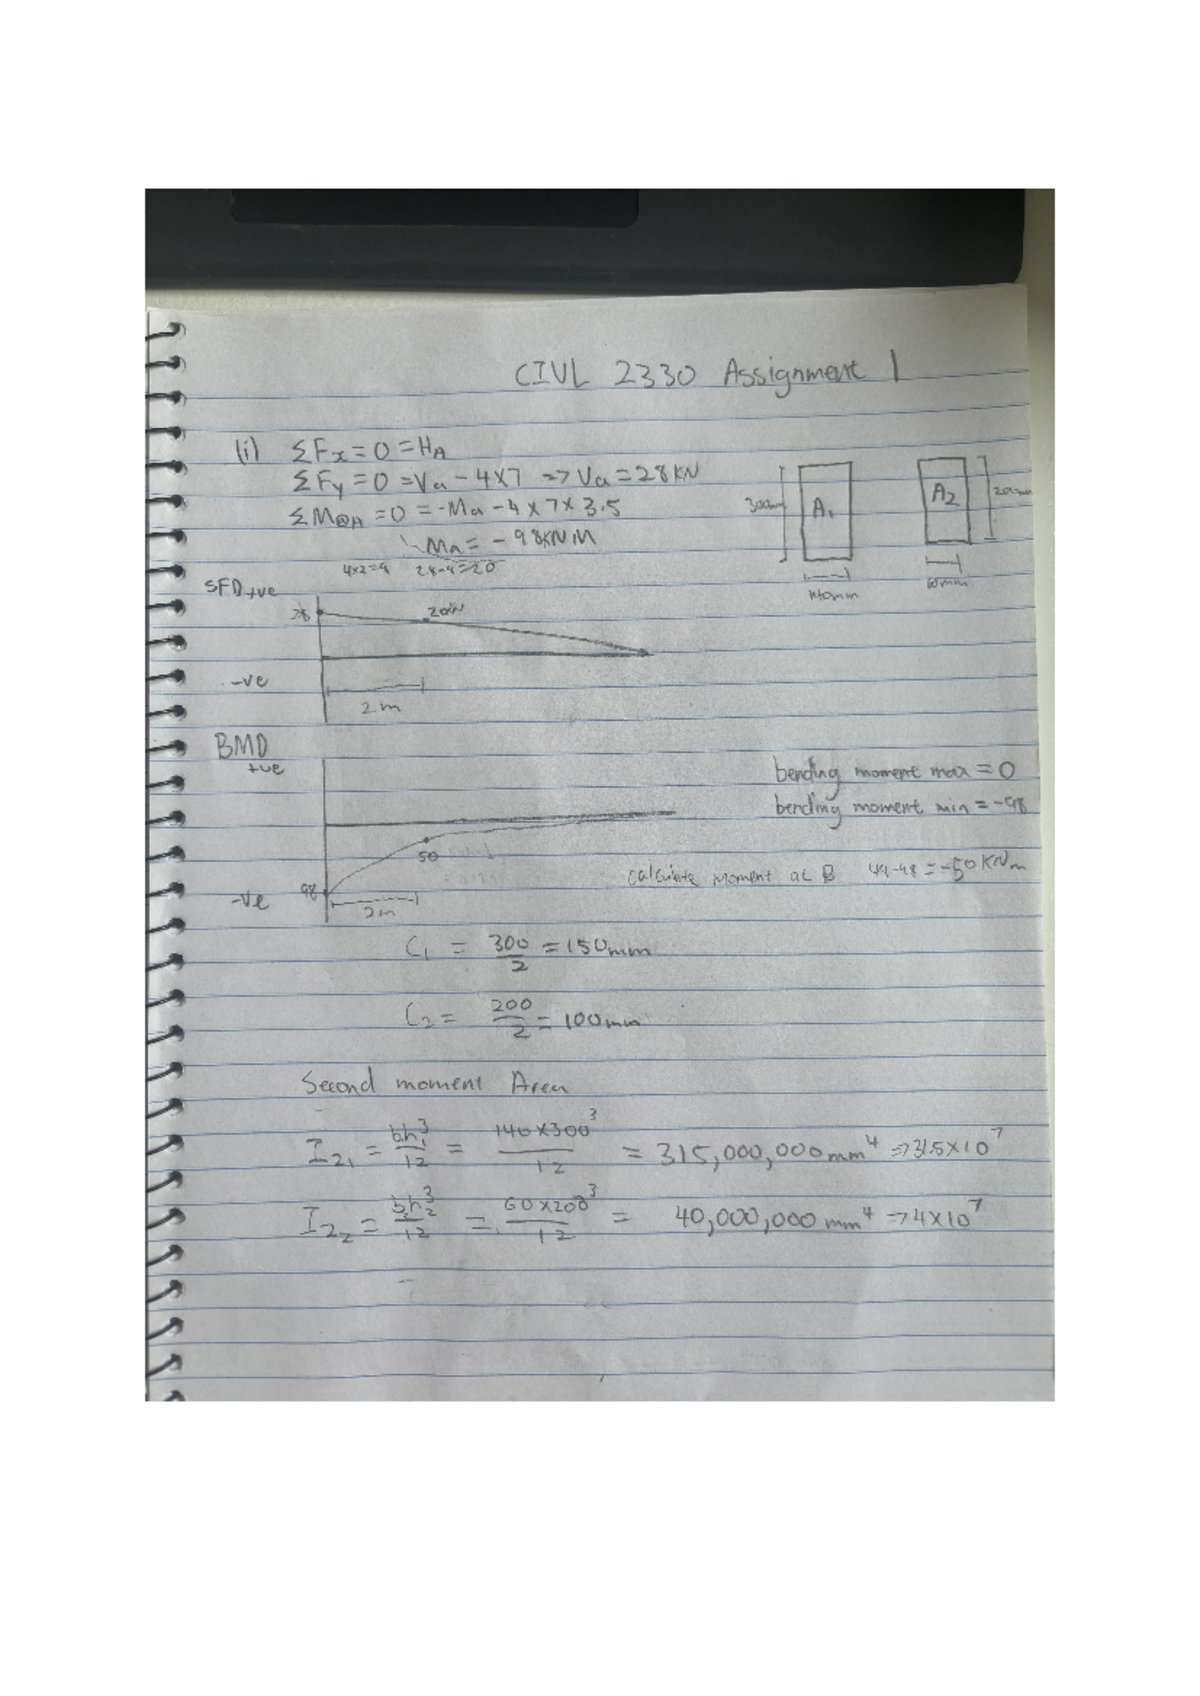 CIVL 2330 Assignment 1
(i) ΣFx = 0 = HA
ΣFy = 0 = Va - 4x7 => Va = 28KN
ΣM@A = 0 = -Ma - 4x7x3.5
Ma = -98KNM
300mm A1 140mm
A2 200mm 60mm
4x2=
=20
SFD +ve
28 20KN
-ve
2m
BMD
+ve
bending moment max = 0
bending moment min = -98
50
calculate moment at B 48-98 = -50KNm
-ve 98
2m
C1 = 300/2 = 150mm
C2 = 200/2 = 100mm
Second moment Area
Iz1 = bh1^3/12 = 140x300^3/12 = 315,000,000mm^4 => 31.5x10^7
Iz2 = bh2^3/12 = 60x200^3/12 = 40,000,000mm^4 => 4x10^7